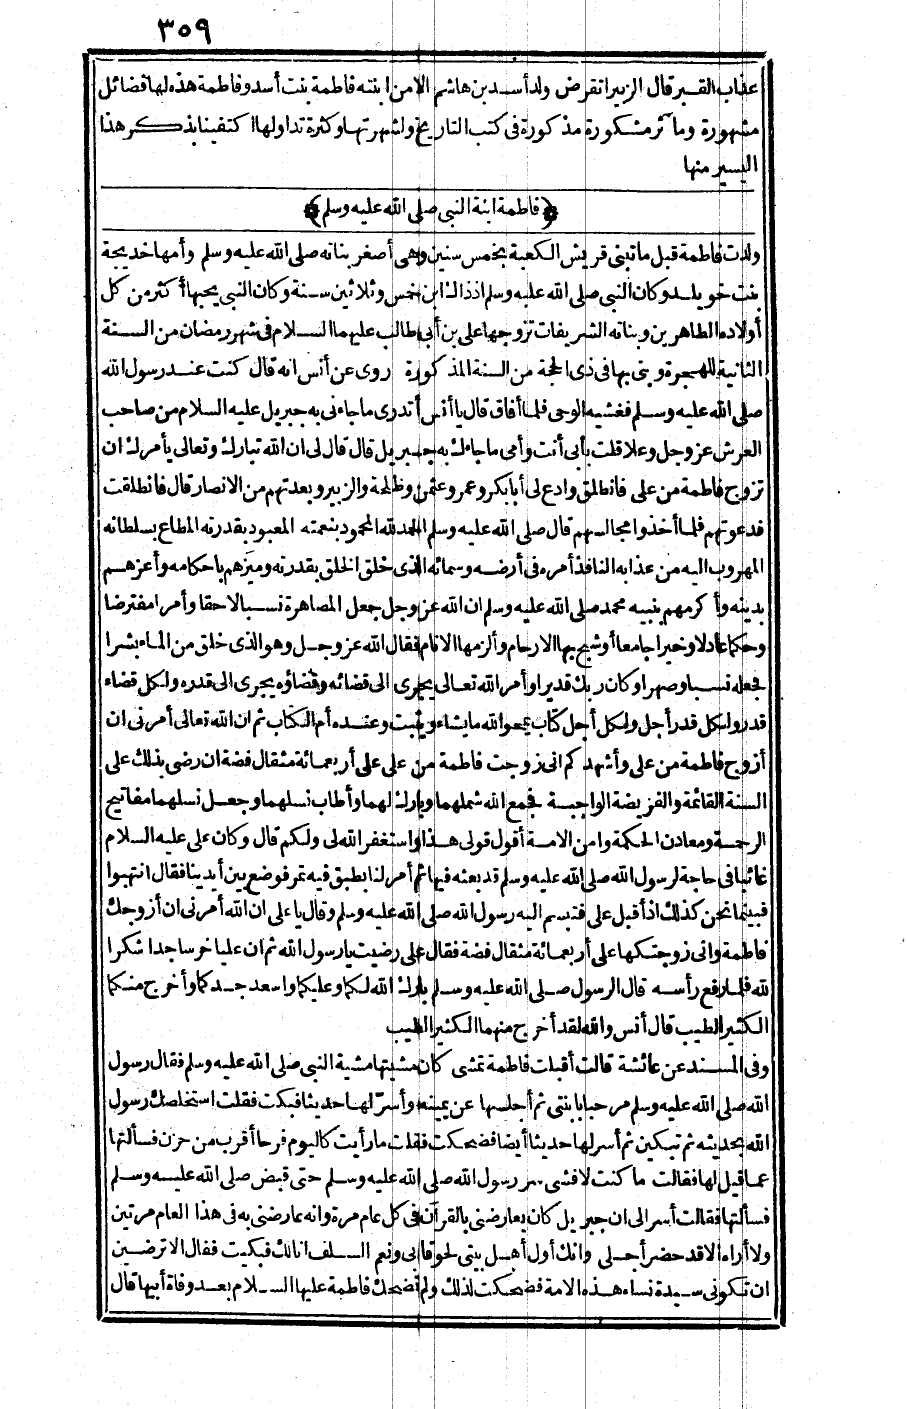 ٣٥٩
عذاب القبر قال الزبير انقرض ولد أسد بن هاشم الا من ابنته فاطمة بنت أسد وفاطمة هذه لها فضائل
مشهورة ومآثر مشكورة مذكورة فى كتب التاريخ ولشهرتها وكثرة تداولها اكتفينا بذكر هذا
اليسير منها
﴿فاطمة ابنة النبى صلى الله عليه وسلم﴾
ولدت فاطمة قبل ما تبنى قريش الكعبة بخمس سنين وهى أصغر بناته صلى الله عليه وسلم وأمها خديجة
بنت خويلد وكان النبى صلى الله عليه وسلم اذ ذاك ابن خمس وثلاثين سنة وكان النبى يحبها أكثر من كل
أولاده الطاهرين وبناته الشريفات تزوجها على بن أبى طالب عليهما السلام فى شهر رمضان من السنة
الثانية للهجرة وبنى بها فى ذى الحجة من السنة المذكورة روى عن أنس انه قال كنت عند رسول الله
صلى الله عليه وسلم فغشيه الوحى فلما أفاق قال يا أنس أتدرى ما جاءنى به جبريل عليه السلام من صاحب
العرش عز وجل وعلا قلت بأبى أنت وأمى ما جاءك به جبريل قال قال لى ان الله تبارك وتعالى يأمرك ان
تزوج فاطمة من على فانطلق وادع لى أبا بكر وعمر وعثمن وطلحة والزبير وبعدتهم من الانصار قال فانطلقت
فدعوتهم فلما أخذوا مجالسهم قال صلى الله عليه وسلم الحمد لله المحمود بنعمته المعبود بقدرته المطاع بسلطانه
المهروب اليه من عذابه النافذ أمره فى أرضه وسمائه الذى خلق الخلق بقدرته وميزهم باحكامه وأعزهم
بدينه وأكرمهم بنبيه محمد صلى الله عليه وسلم ان الله عز وجل جعل المصاهرة نسبا لاحقا وأمرا مفترضا
وحكما عادلا وخيرا جامعا أوشج بها الارحام وألزمها الانام فقال الله عز وجل وهو الذى خلق من الماء بشرا
فجعله نسبا وصهرا وكان ربك قديرا وأمر الله تعالى يجرى الى قضائه وقضاؤه يجرى الى قدره ولكل قضاء
قدر ولكل قدر أجل ولكل أجل كتاب يمحو الله ما يشاء ويثبت وعنده أم الكتاب ثم ان الله تعالى أمرنى ان
أزوج فاطمة من على وأشهدكم انى زوجت فاطمة من على على أربعمائة مثقال فضة ان رضى بذلك على
السنة القائمة والفريضة الواجبة فجمع الله شملهما وبارك لهما وأطاب نسلهما وجعل نسلهما مفاتيح
الرحمة ومعادن الحكمة وامن الامة أقول قولى هذا واستغفر الله لى ولكم قال وكان على عليه السلام
غائبا فى حاجة لرسول الله صلى الله عليه وسلم قد بعثه فيها ثم أمر لنا بطبق فيه تمر فوضع بين أيدينا فقال انتهبوا
فبينما نحن كذلك اذ أقبل على فتبسم اليه رسول الله صلى الله عليه وسلم وقال يا على ان الله أمرنى ان أزوجك
فاطمة وانى زوجتكها على أربعمائة مثقال فضة فقال على رضيت يا رسول الله ثم ان عليا خر ساجدا شكرا
لله فلما رفع رأسه قال الرسول صلى الله عليه وسلم بارك الله لكما وعليكما واسعد جدكما وأخرج منكما
الكثير الطيب قال أنس والله لقد أخرج منهما الكثير الطيب
وفى المسند عن عائشة قالت أقبلت فاطمة تمشى كان مشيتها مشية النبى صلى الله عليه وسلم فقال رسول
الله صلى الله عليه وسلم مرحبا بابنتى ثم أجلسها عن يمينه وأسر لها حديثا فبكت فقلت استخلصك رسول
الله بحديثه ثم تبكين ثم أسر لها حديثا أيضا فضحكت فقلت ما رأيت كاليوم فرحا أقرب من حزن فسألتها
عما قيل لها فقالت ما كنت لافشى سر رسول الله صلى الله عليه وسلم حتى قبض صلى الله عليه وسلم
فسألتها فقالت أسر الى ان جبريل كان يعارضنى بالقرآن فى كل عام مرة وانه عارضنى به فى هذا العام مرتين
ولا أراه الا قد حضر أجلى وانك أول أهل بيتى لحوقا بى ونعم السلف انا لك فبكيت فقال الا ترضين
ان تكونى سيدة نساء هذه الامة فضحكت لذلك ولم تضحك فاطمة عليها السلام بعد وفاة أبيها قال